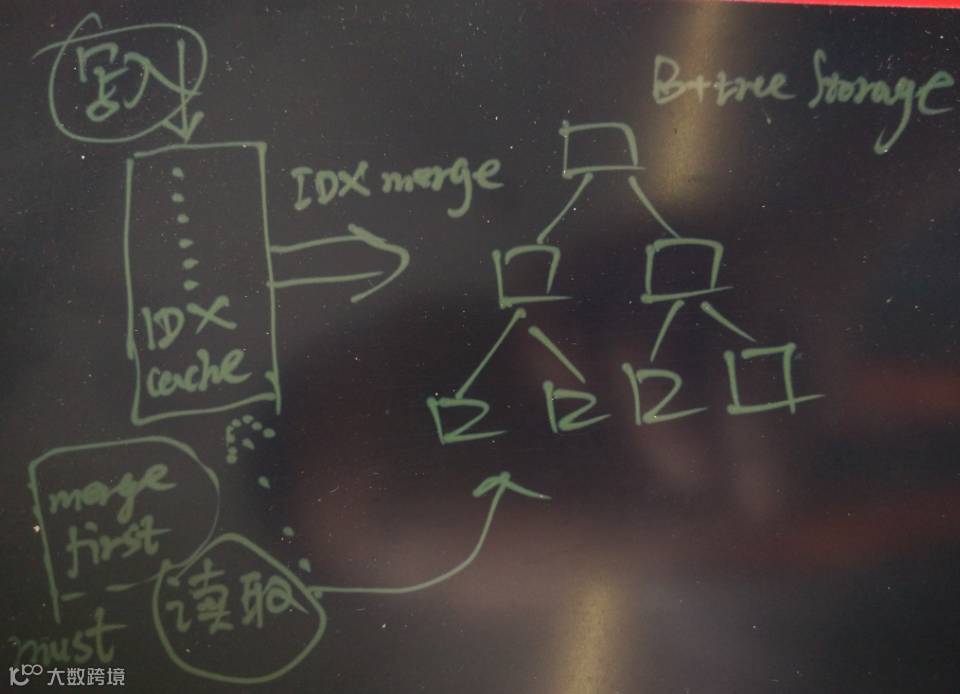 写入
B+tree Storage
IDX merge
IDX
cache
merge
first
读取
must
大数跨境